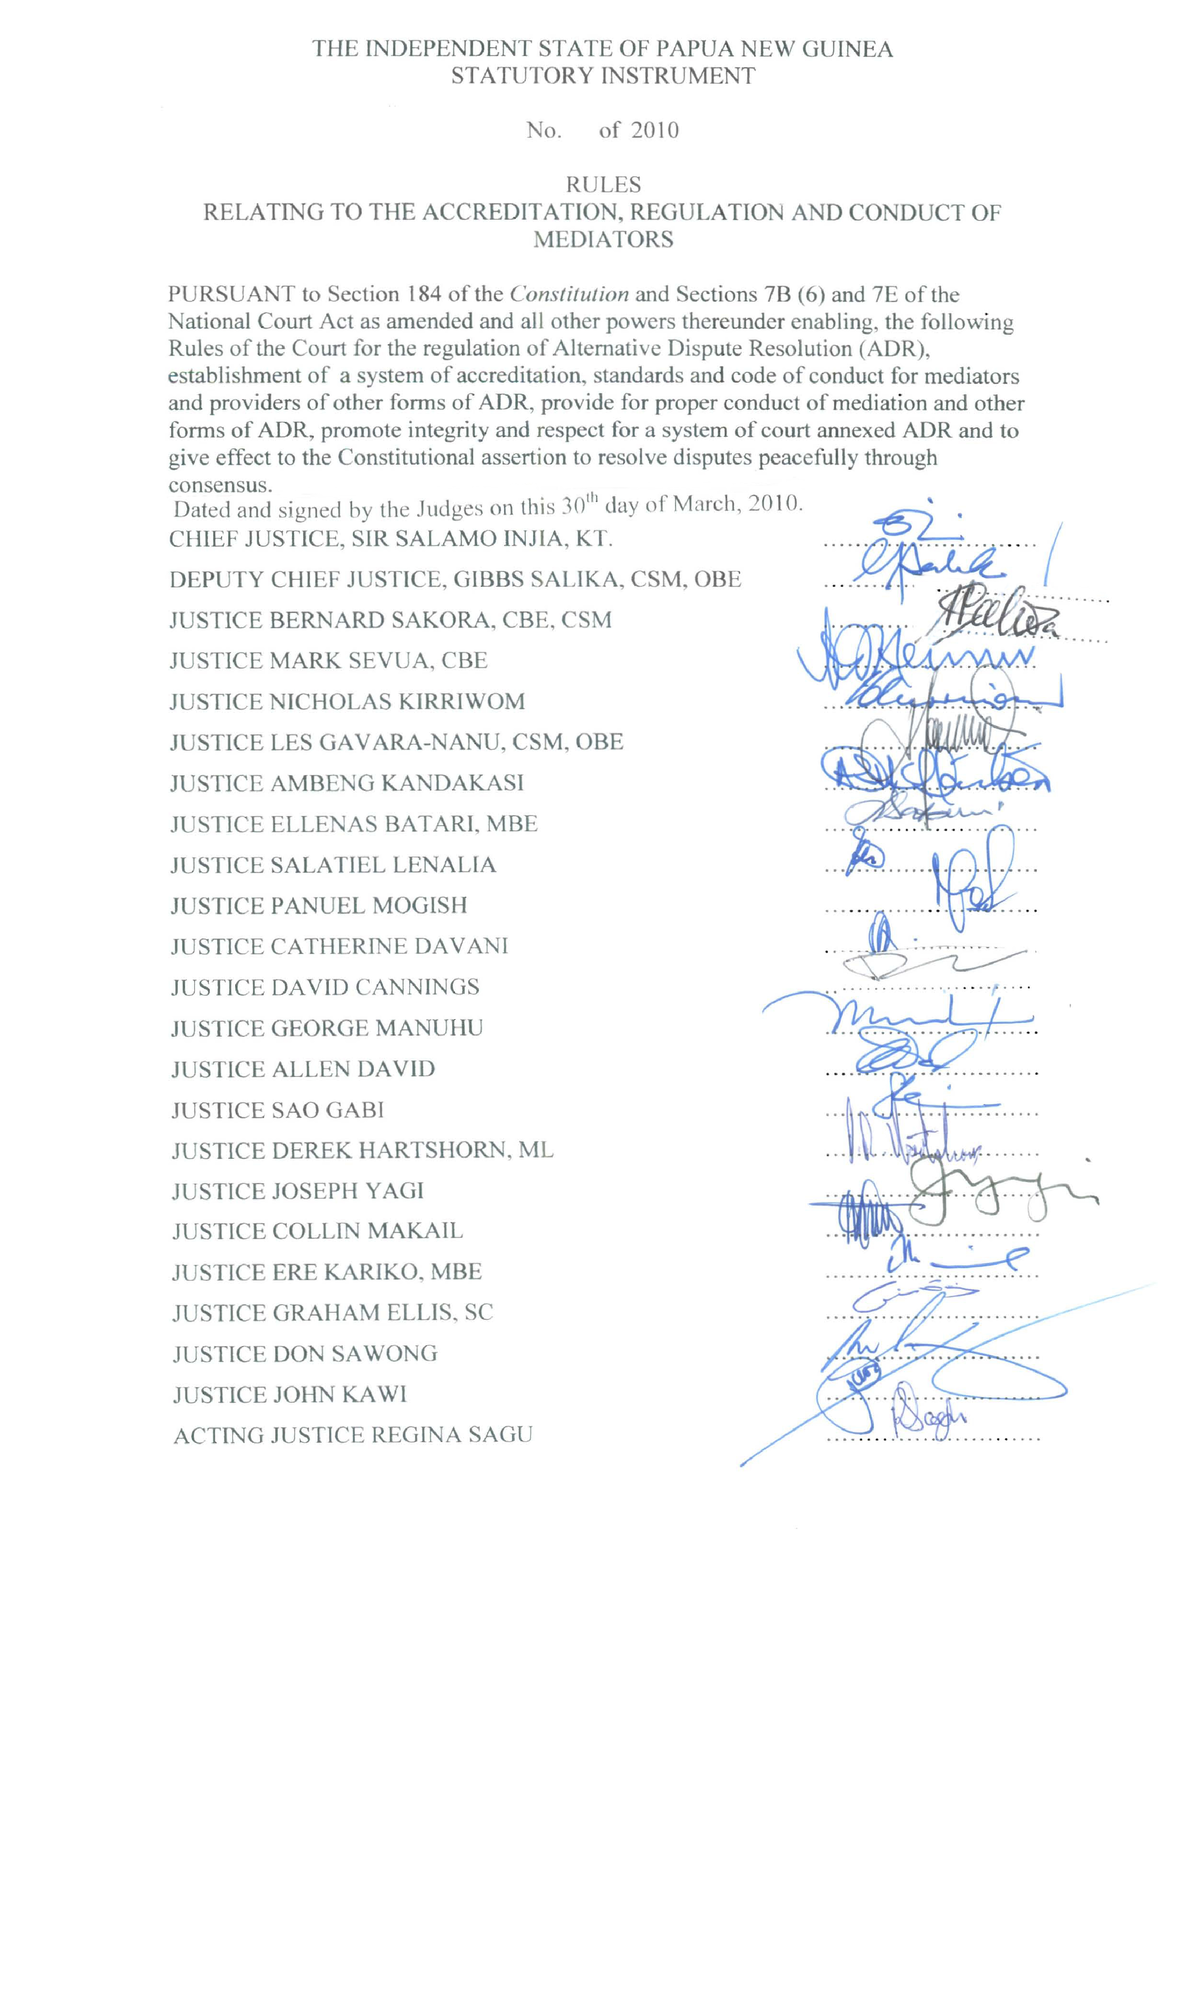 THE INDEPENDENT STATE OF PAPUA NEW GUINEA
STATUTORY INSTRUMENT
No. of 2010
RULES
RELATING TO THE ACCREDITATION, REGULATION AND CONDUCT OF
MEDIATORS
PURSUANT to Section 184 of the Constitution and Sections 7B (6) and 7E of the
National Court Act as amended and all other powers thereunder enabling, the following
Rules of the Court for the regulation of Alternative Dispute Resolution (ADR),
establishment of a system of accreditation, standards and code of conduct for mediators
and providers of other forms of ADR, provide for proper conduct of mediation and other
forms of ADR, promote integrity and respect for a system of court annexed ADR and to
give effect to the Constitutional assertion to resolve disputes peacefully through
consensus.
Dated and signed by the Judges on this 30th day of March, 2010.
CHIEF JUSTICE, SIR SALAMO INJIA, KT.
DEPUTY CHIEF JUSTICE, GIBBS SALIKA, CSM, OBE
JUSTICE BERNARD SAKORA, CBE, CSM
JUSTICE MARK SEVUA, CBE
JUSTICE NICHOLAS KIRRIWOM
JUSTICE LES GAVARA-NANU, CSM, OBE
JUSTICE AMBENG KANDAKASI
JUSTICE ELLENAS BATARI, MBE
JUSTICE SALATIEL LENALIA
JUSTICE PANUEL MOGISH
JUSTICE CATHERINE DAVANI
JUSTICE DAVID CANNINGS
JUSTICE GEORGE MANUHU
JUSTICE ALLEN DAVID
JUSTICE SAO GABI
JUSTICE DEREK HARTSHORN, ML
JUSTICE JOSEPH YAGI
JUSTICE COLLIN MAKAIL
JUSTICE ERE KARIKO, MBE
JUSTICE GRAHAM ELLIS, SC
JUSTICE DON SAWONG
JUSTICE JOHN KAWI
ACTING JUSTICE REGINA SAGU